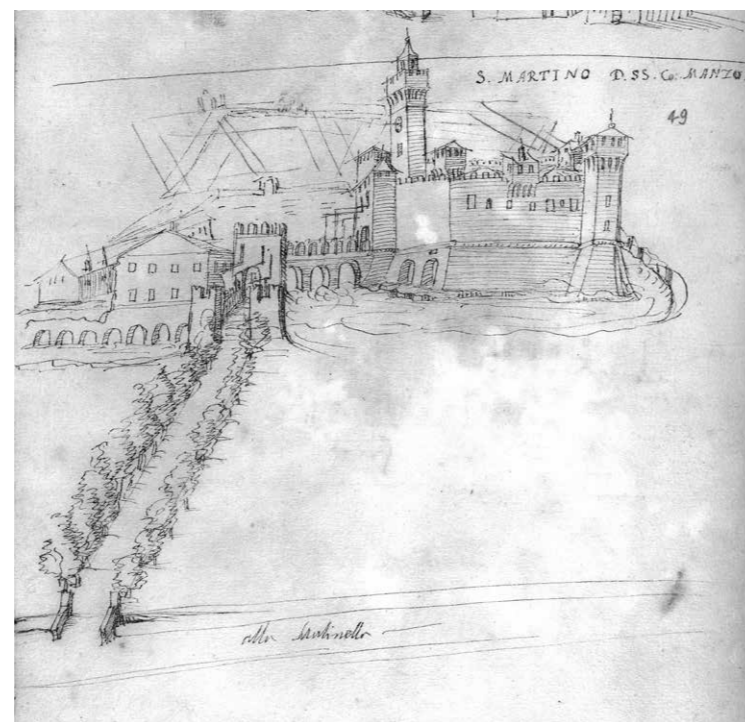 S. MARTINO D. SS. Co: MANZO
49
alla